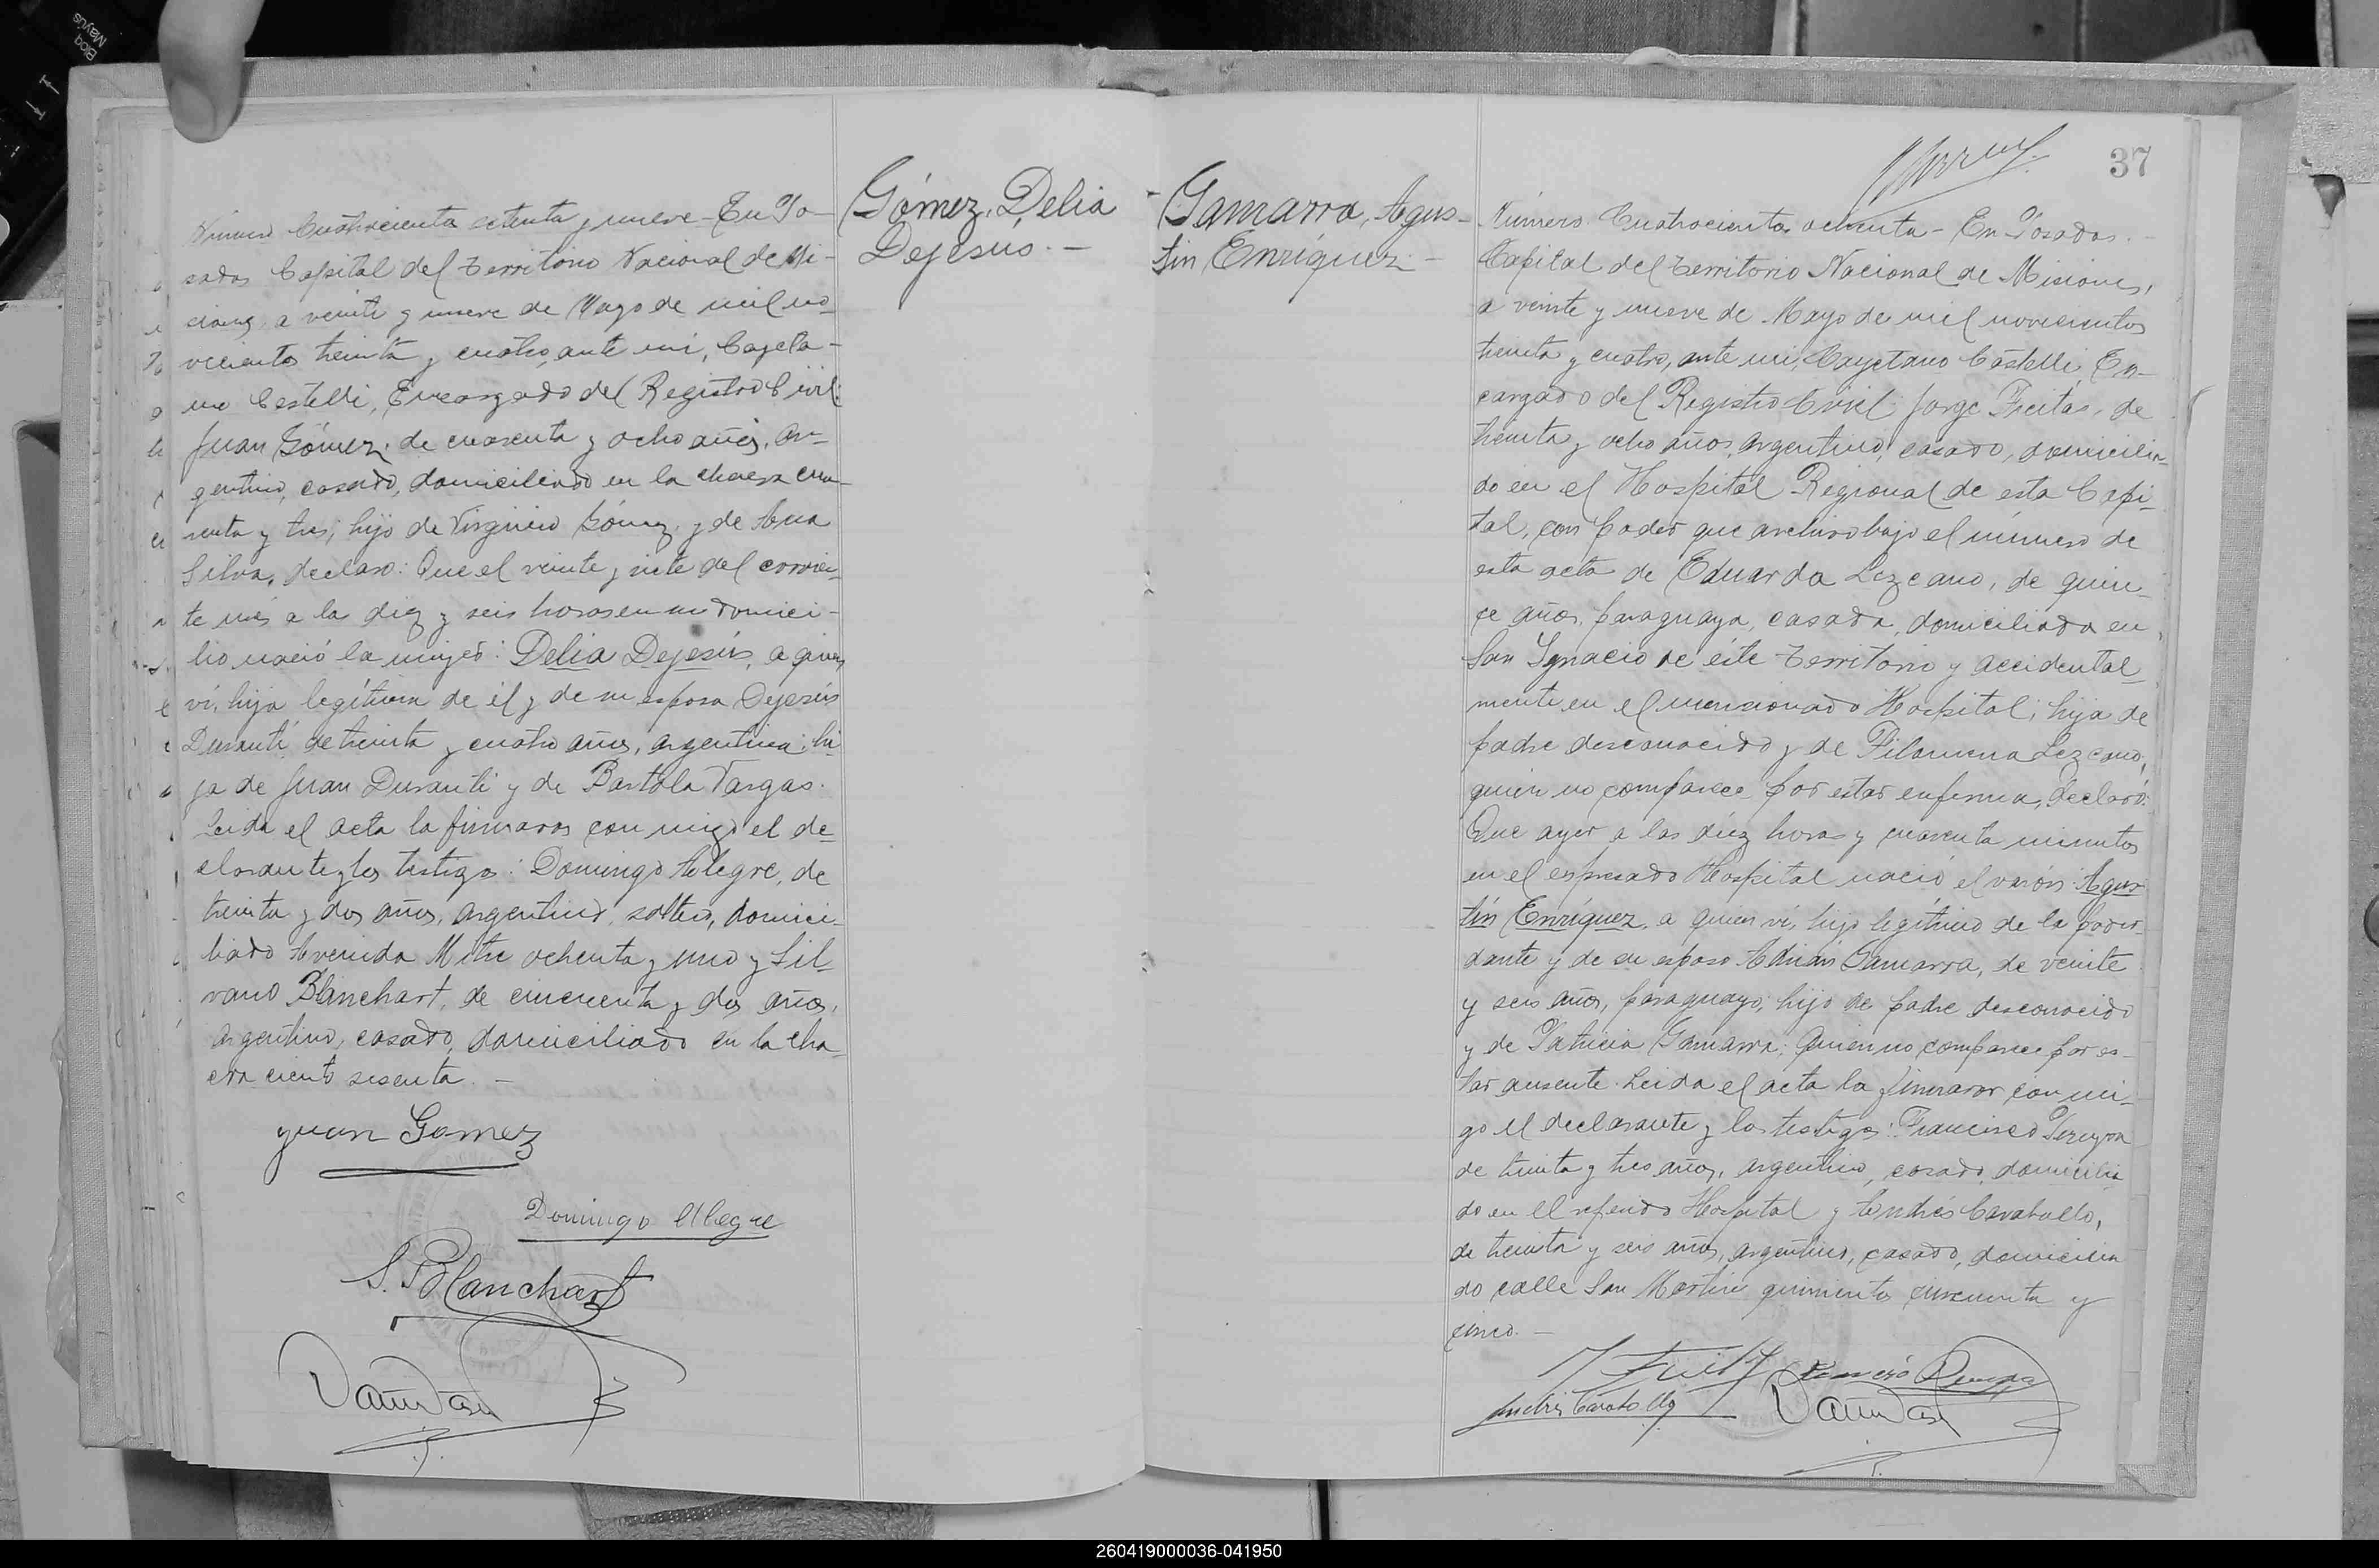 Bloq
Mayús
Gómez, Delia
Dejesús. -
Número Cuatrocientos setenta y nueve - En Po-
sadas Capital del Territorio Nacional de Mi-
siones, a veinte y nueve de Mayo de mil no-
vecientos treinta y cuatro, ante mi, Cayeta-
no Castelli, Encargado del Registro Civil:
Juan Gómez, de cuarenta y ocho años, ar-
gentino, casado, domiciliado en la chacra cua-
renta y tres, hijo de Virginio Gómez y de Ana
Silva, declaró: Que el veinte y siete del corrien-
te mes a las diez y seis horas en su domici-
lio nació la mujer: Delia Dejesús, a quien
ví, hija legítima de él y de su esposa Dejesús
Duranti, de treinta y cuatro años, argentina; hi-
ja de Juan Duranti y de Bartola Vargas.
Leida el acta la firmaron con migo el de-
clarante y los testigos: Domingo Alegre, de
treinta y dos años, argentino, soltero, domici-
liado Avenida Mitre ochenta y uno y Sil-
vano Blanchart, de cincuenta y dos años,
argentino, casado, domiciliado en la cha-
cra ciento sesenta. -
Juan Gomez
Domingo Alegre
S. Blanchart
37
Gamarra, Agus-
tin Enríquez -
Número Cuatrocientos ochenta - En Posadas.
Capital del Territorio Nacional de Misiones,
a veinte y nueve de Mayo de mil novecientos
treinta y cuatro, ante mi, Cayetano Castelli, En-
cargado del Registro Civil: Jorge Freitas, de
treinta y ocho años, argentino, casado, domicilia-
do en el Hospital Regional de esta Capi-
tal, con poder que archivo bajo el número de
esta acta de Eduarda Lezcano, de quin-
ce años, paraguaya, casada, domiciliada en
San Ignacio de éste Territorio y accidental-
mente en el mencionado Hospital; hija de
padre desconocido y de Filomena Lezcano,
quien no comparece por estar enferma, declaró:
Que ayer a las diez horas y cuarenta minutos
en el expresado Hospital nació el varón: Agus-
tín Enríquez, a quien ví, hijo legítimo de la poder-
dante y de su esposo Adrián Gamarra, de veinte
y seis años, paraguayo; hijo de padre desconocido
y de Patricia Gamarra; quien no comparece por es-
tar ausente. Leida el acta la firmaron con mi-
go el declarante y los testigos: Francisco Pereyra
de treinta y tres años, argentino, casado, domicilia
do en el referido Hospital y Andrés Caraballo,
de treinta y seis años, argentino, casado, domicilia
do calle San Martin quinientos cincuenta y
cinco. -
Andrés Caraballo
260419000036-041950